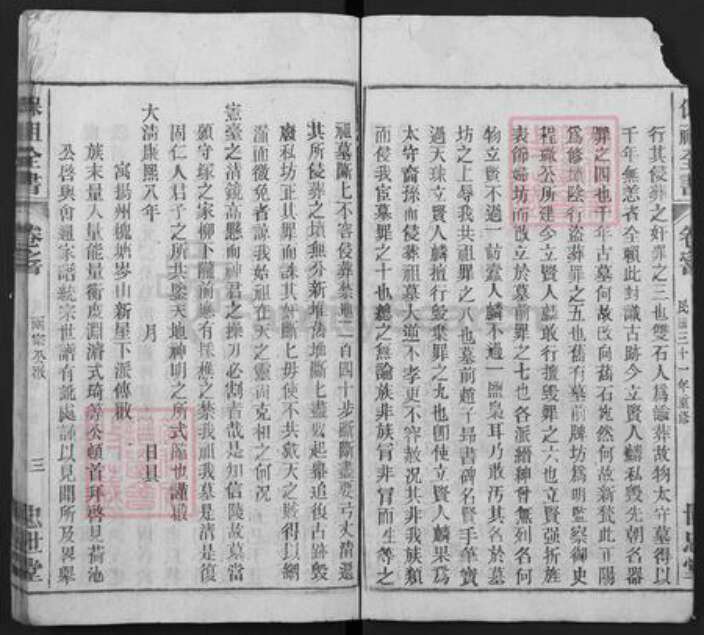 行其侵葬之奸罪之三也雙石人爲諭葬故物太守墓得以
千年無恙者全賴此封識古跡今立賢人麟私毀先朝名器
罪之四也千年古墓何故改向舊石
爲修墳陰行盜葬罪之五也舊有墓前牌坊爲明監察御史
公所建今立賢人麟敢行擅毀罪之六也立賢強折旌
表節婦坊而改立於墓前罪之七也各派縉紳曾無列名何
物立賢不過一人麟不過一鹽梟耳乃敢污其名於墓
坊之上辱我共祖罪之八也墓前趙子昂書碑名賢手牟寶
過天珠立賢人麟擅行毀棄罪之九也卽使立賢人麟果爲
太守裔孫而侵葬祖墓大逆不孝更不容赦况其非我族類
而侵我宦墓罪之十也總之無論族非族冑非冑而生等之
祖墓斷上不容侵葬禁地一百四十步斷斷盡要弓丈淸還
其所侵葬之墳無分新堆舊堆斷上盡數起舉追復古跡毀
私坊正其罪而誅其奸斷上毋使不共戴天之賊得以網
漏而徼免者諒我始祖在天之靈尚克相之何况
憲臺之淸鏡高懸而神君之操刀必割者哉是知信陵故墓當
願守塚之家柳下隴前應有採樵之禁我祖我墓是淸是復
固仁人君子之所共鑒天地神明之所式臨也謹檄
大淸康熙八年 月 日具
寓揚州槐塘岑山新星下派傳檄
族末量人量能量衡虞淵濬式琦等公頓首拜啓見荷池
公啓與會通家譜統宗世譜有訛處謹以見聞所及畧舉
全書 卷之首 三
卷之首 民國三十一年重修